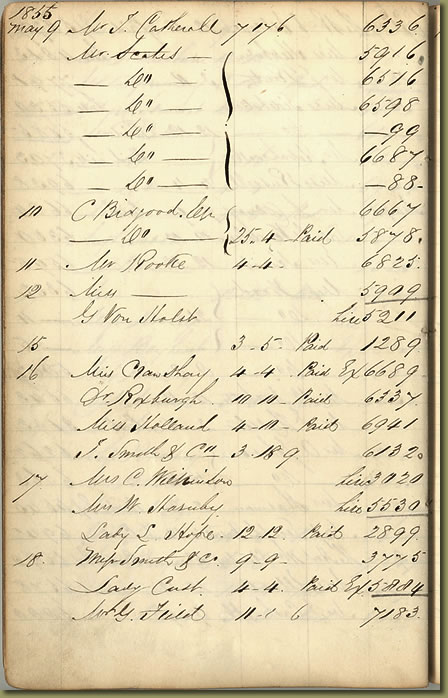 1855
May 9 Mr T. Catherall 7 17 6 6336
Mr Scates — 5916
— Do — 6516
— Do — 6598
— Do — — 99
— Do — 6687
— Do — — 88
10 C Bidgood. Esqr 6667
— Do — 25.4 Paid 5878
11 Mr Rooke 4-4- 6825
12 Miss — 5909
G Von Holst hire 5211
15 3-5- Paid 1289
16 Miss Crawshay 4-4 Paid Ex 6689
Dr. Roxburgh 10 10 Paid 6337
Miss Holland 4-10- Paid 6941
J. Smith & Co 3.18 9 6132
17 Mrs C. Wilkinson hire 3020
Mrs W. Hornby hire 5530
Lady L. Hope 12.12. Paid 2899
18. Smith & Co. 9-9- 3775
Lady Cust. 4-4. Paid Ex 5884
Mr G. Field 11 6 7183